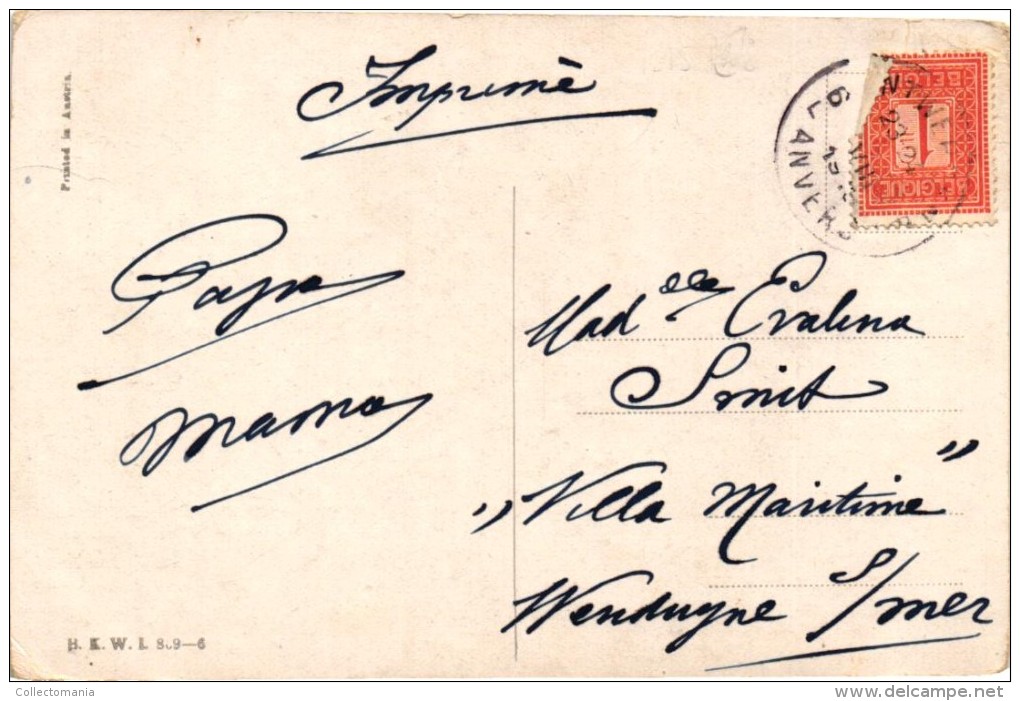 Imprimé
Printed in Austria.
BELGIË
1
BELGIQUE
6 L ANVERS
Papa
Mama
Mad elle Evalina
Smit
„Villa Maritime"
Wenduyne s/mer
B. K. W. I. 889—6
Collectomania
www.delcampe.net